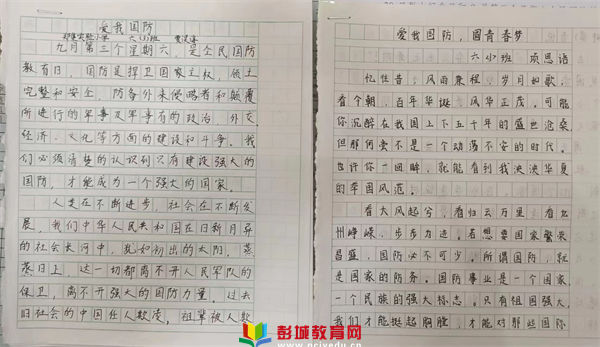 爱我国防
六(1)班
九月第三个星期六,是全民国防
教育日,国防是捍卫国家主权,领土
完整和安全,防备外来侵略者和颠覆
所进行的军事及军事有的政治,外交
经济,文化等方面的建设和斗争。我
们必须清楚的认识到只有建设强大的
国防,才能成为一个强大的国家。
人类在不断进步,社会在不断发
展,我们中华人民共和国在日新月异
的社会长河中,犹如初出的太阳,蒸
蒸日上,这一切都离不开人民军队的
保卫,离不开强大的国防力量。过去
旧社会的中国任人欺凌,祖辈被人欺
爱我国防,圆青春梦
六 班 项思语
忆往昔,风雨兼程,岁月如歌,
看今朝,百年华诞,风华正茂。可能
你沉醉在我国上下五千年的盛世沧桑
但那何尝不是一个动荡不安的时代。
也许你一回眸,就能看到我泱泱华夏
的泰国风范。
看大风起兮,看归云万里,看九
州峥嵘,步步为进。若想要国家繁荣
昌盛,国防必不可少。所谓国防,就
是国家的防务。国防事业是一个国家、
一个民族的强大标志。只有祖国强大,
我们才能挺起胸膛,才能对那些国际
彭城教育网
www.pcjyw.cn